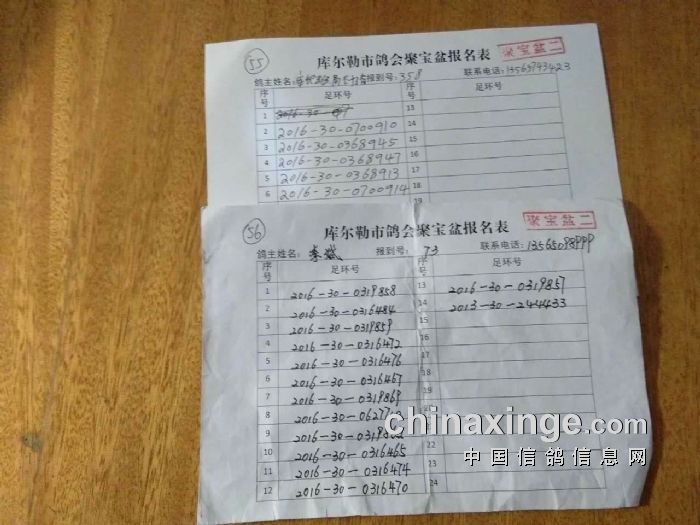 55
库尔勒市鸽会聚宝盆报名表
聚宝盆二
鸽主姓名: 报到号: 358 联系电话: 13565743423
序号 足环号 足环号
1 13
2 2016-30-0700910 14
3 2016-30-0368945 15
4 2016-30-0368947 16
5 2016-30-0368913 17
6 2016-30-0700914 18
19
56
库尔勒市鸽会聚宝盆报名表
聚宝盆二
鸽主姓名: 李斌 报到号: 73 联系电话:
序号 足环号 足环号
1 2016-30-0319858 13 2016-30-0319857
2 2016-30-0316484 14 2013-30-244433
3 2016-30-0319859 15
4 2016-30-0316472 16
5 2016-30-0316476 17
6 2016-30-0316467 18
7 2016-30-0319869 19
8 20
9
10 2016-30-0316465 22
11 2016-30-0316474 23
12 2016-30-0316470 24
chinaxinge.com
中国信鸽信息网